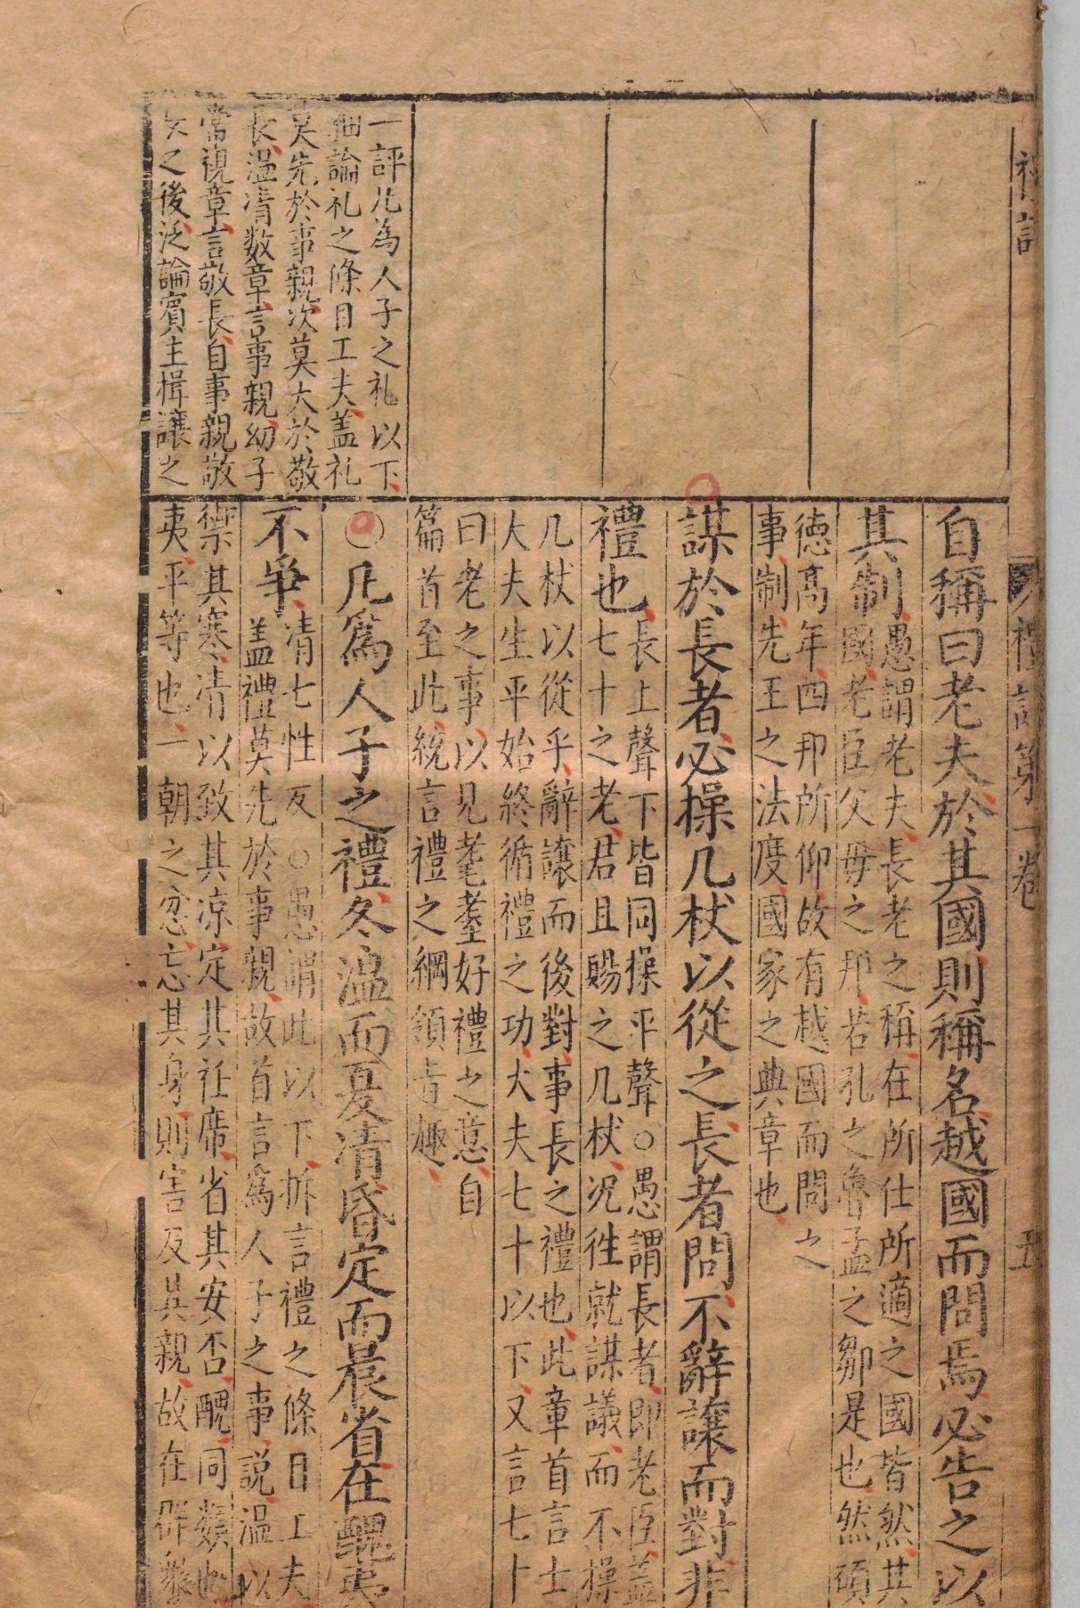 禮記第一卷
五
自稱曰老夫於其國則稱名越國而問焉必告之以
其制
愚謂老夫長老之稱在所仕所適之國皆然其
國老臣父母之邦若孔之魯孟之鄒是也然碩
德高年四邦所仰故有越國而問之
事制先王之法度國家之典章也
謀於長者必操几杖以從之長者問不辭讓而對非
禮也
長上聲下皆同操平聲○愚謂長者即老臣蓋
七十之老君且賜之几杖況徃就謀議而不操
几杖以從乎辭讓而後對事長之禮也此章首言士
大夫生平始終循禮之功大夫七十以下又言七十
曰老之事以見耄耋好禮之意自
篇首至此統言禮之綱領旨趣
○凡爲人子之禮冬溫而夏凊昏定而晨省在醜夷
不爭
凊七性反○愚謂此以下拆言禮之條目工夫
蓋禮莫先於事親故首言爲人子之事說溫以
禦其寒凊以致其凉定其衽席省其安否醜同類也
夷平等也一朝之忿忘其身則害及其親故在群衆
一評凡為人子之礼以下
細論礼之條目工夫蓋礼
莫先於事親次莫大於敬
長溫凊数章言事親幼子
常視章言敬長自事親敬
長之後泛論賓主揖讓之